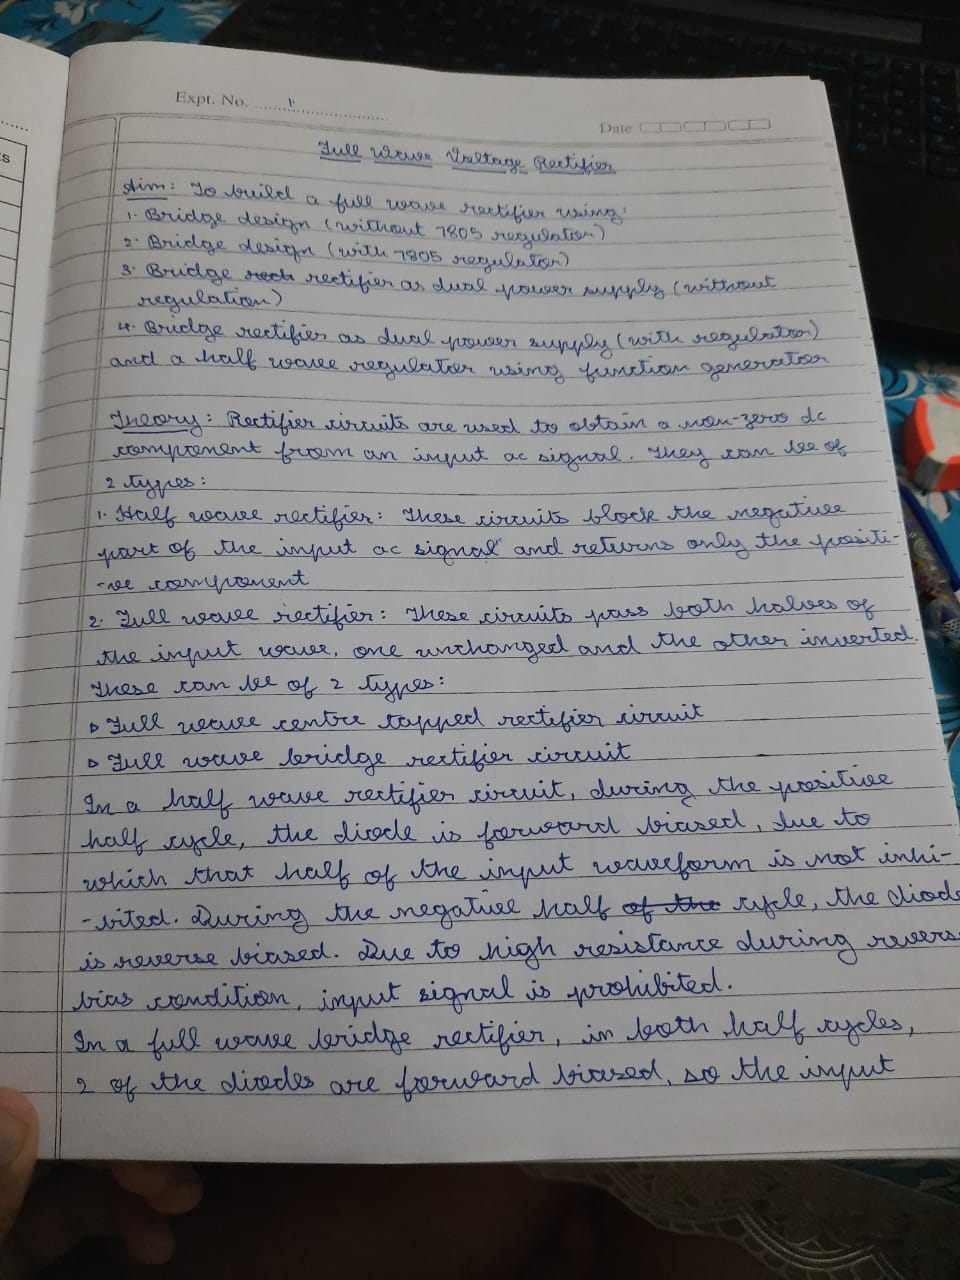 Expt. No. 1
Date
Full Wave Voltage Rectifier
Aim: To build a full wave rectifier using:
1. Bridge design (without 7805 regulator)
2. Bridge design (with 7805 regulator)
3. Bridge rech rectifier as dual power supply (without
regulation)
4. Bridge rectifier as dual power supply (with regulator)
and a half wave regulator using function generator
Theory: Rectifier circuits are used to obtain a non-zero dc
component from an input ac signal. They can be of
2 types:
1. Half wave rectifier: These circuits block the negative
part of the input ac signal and returns only the positi-
-ve component
2. Full wave rectifier: These circuits pass both halves of
the input wave, one unchanged and the other inverted.
These can be of 2 types:
▷ Full wave centre tapped rectifier circuit
▷ Full wave bridge rectifier circuit
In a half wave rectifier circuit, during the positive
half cycle, the diode is forward biased, due to
which that half of the input waveform is not inhi-
-bited. During the negative half of the cycle, the diode
is reverse biased. Due to high resistance during revers
bias condition, input signal is prohibited.
In a full wave bridge rectifier, in both half cycles,
2 of the diodes are forward biased, so the input